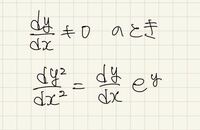 dy/dx ≠ 0 のとき
dy²/dx² = dy/dx e^y